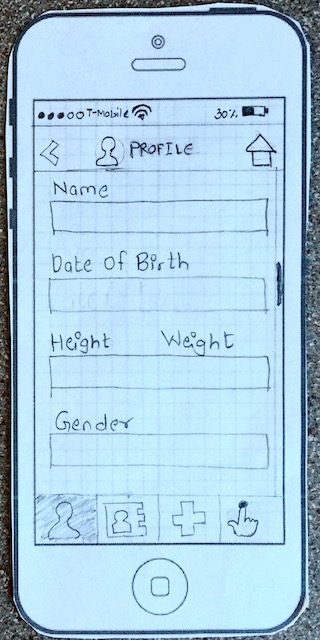 T-Mobile 30%
PROFILE
Name
Date Of Birth
Height Weight
Gender